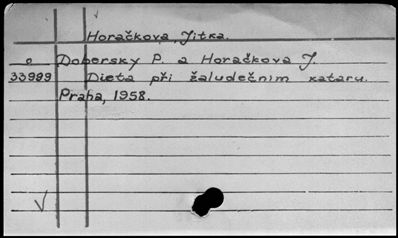 Horačkova, Jitka.
o Dobersky P. a Horačkova J.
33999 Dieta při žaludečnim kataru.
Praha, 1958.